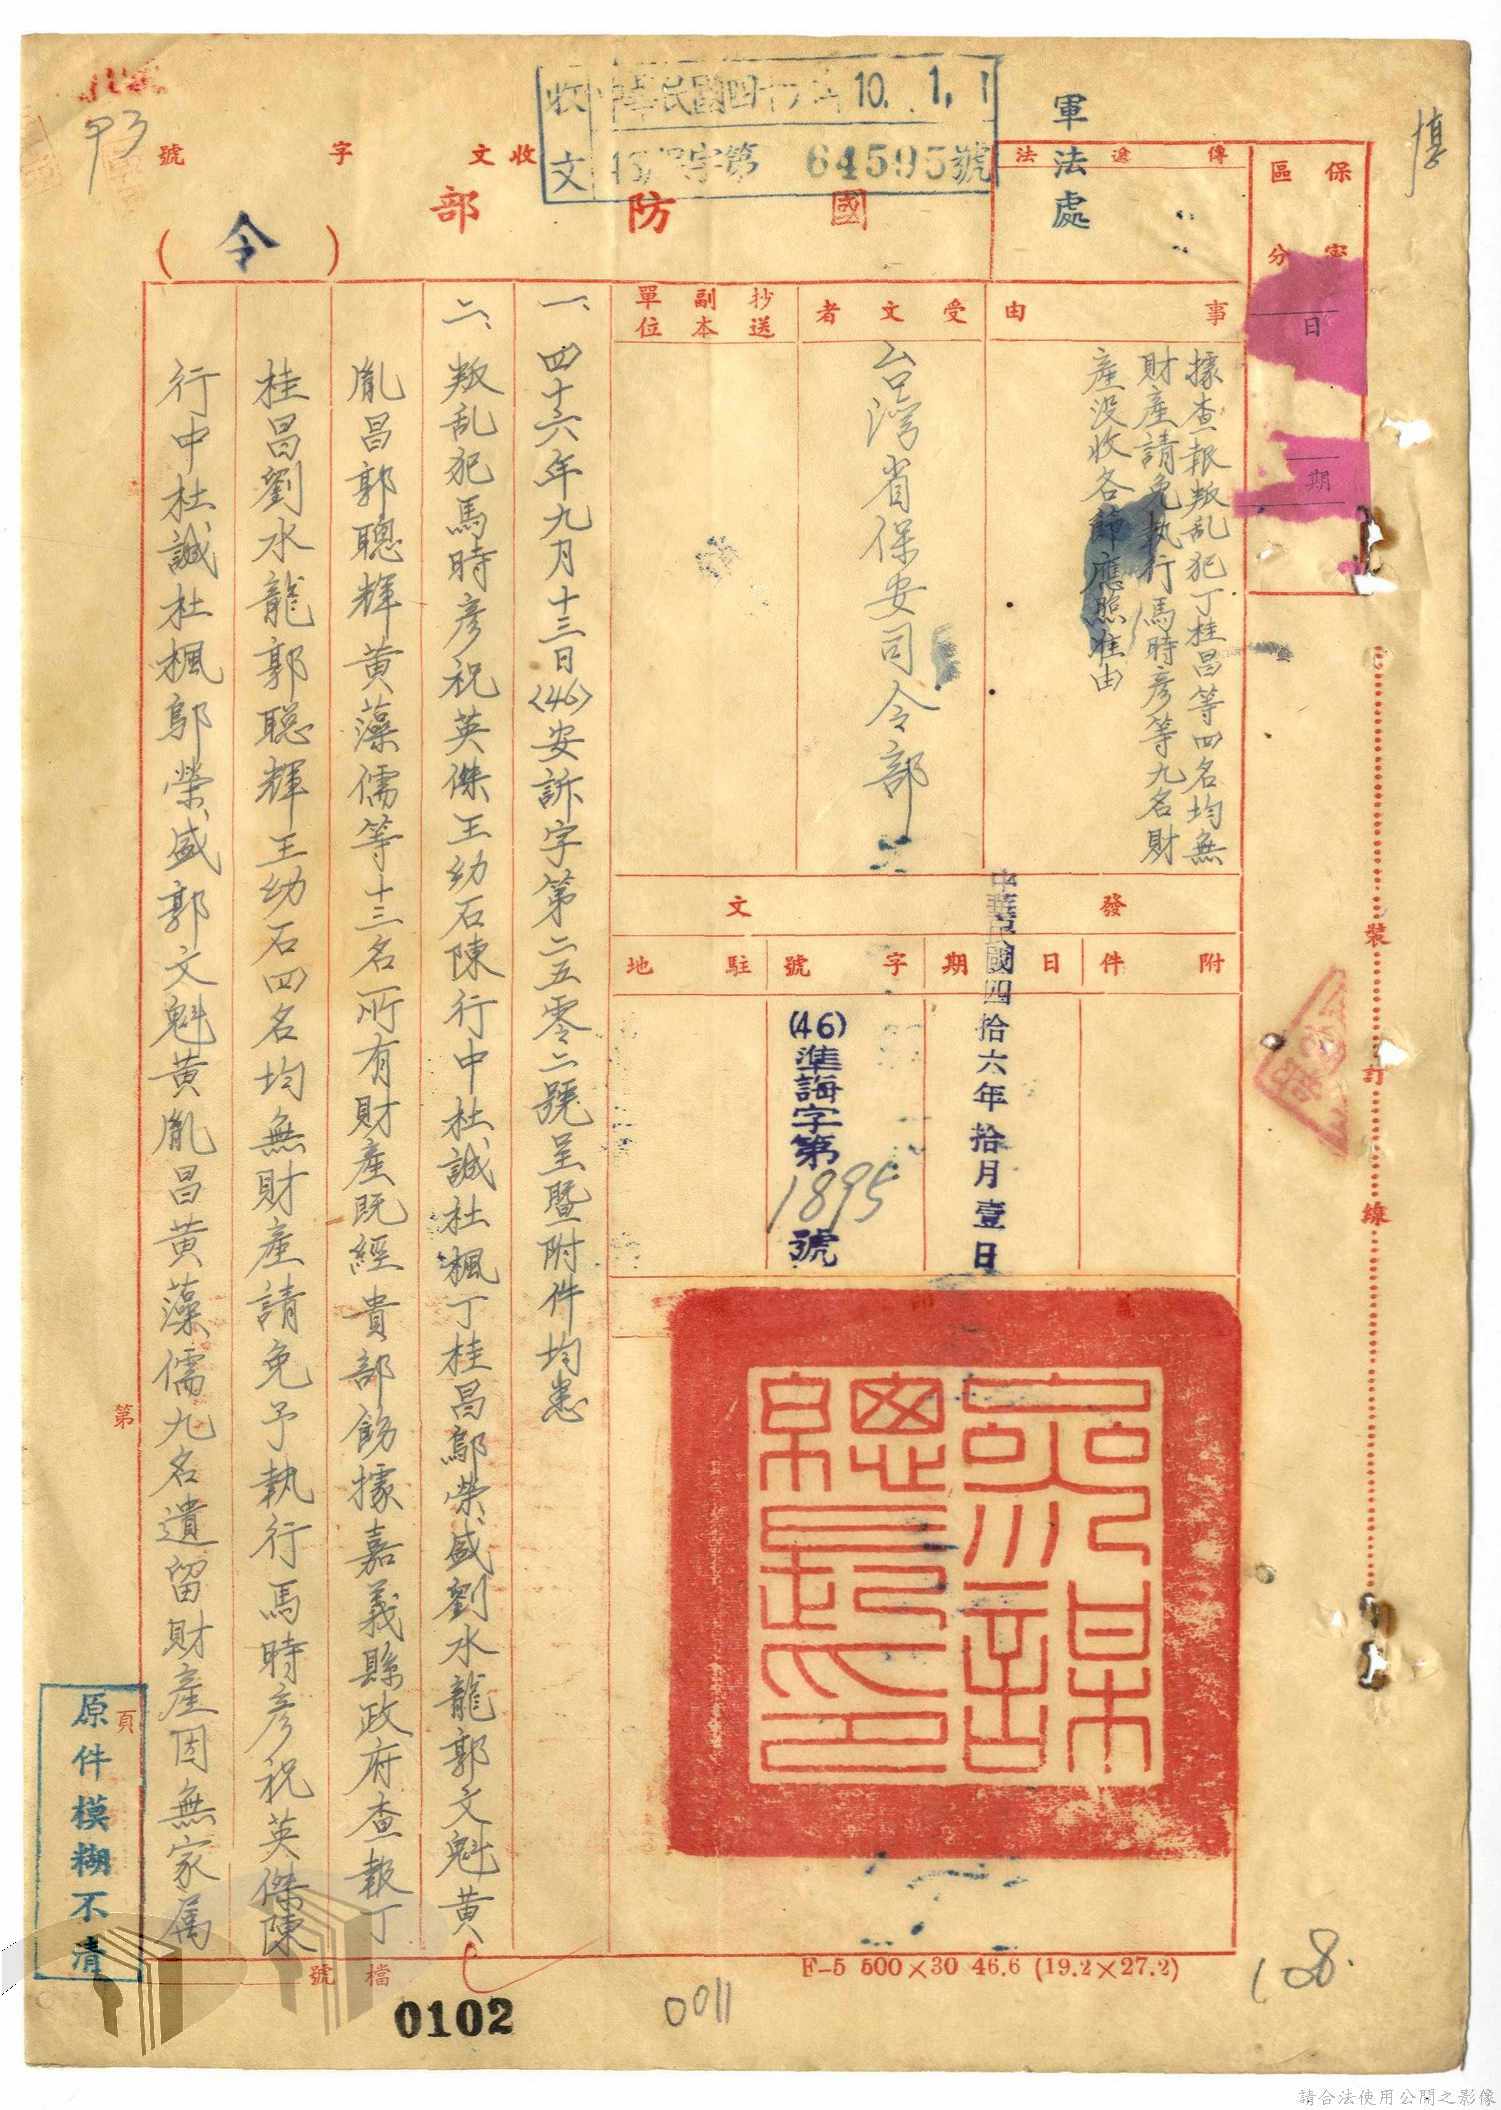 淳
保密
區分
日
期
軍法處
傳遞法
中華民國四十六年10.1.1
收文
字第64595號
收文 字 號
93
國防部
(令)
事由
據查報叛乱犯丁桂昌等四名均無
財產請免執行馬時彥等九名財
產没收各節應照准由
受文者
台灣省保安司令部
抄送副本單位
發文
附件
日期
中華民國四拾六年拾月壹日
字號
(46)準誨字第1895號
駐地
參謀總長之印
一、四十六年九月十三日(46)安訴字第二五零二號呈暨附件均悉
二、叛乱犯馬時彥祝英傑王幼石陳行中杜誠杜楓丁桂昌鄔榮盛劉水龍郭文魁黄
胤昌郭聰輝黄藻儒等十三名所有財產既經貴部飭據嘉義縣政府查報丁
桂昌劉水龍郭聰輝王幼石四名均無財產請免予執行馬時彥祝英傑陳
行中杜誠杜楓鄔榮盛郭文魁黄胤昌黄藻儒九名遺留財產固無家属
裝訂線
第 頁
原件模糊不清
檔號
F-5 500×30 46.6 (19.2×27.2)
0102
0011
108.
請合法使用公開之影像